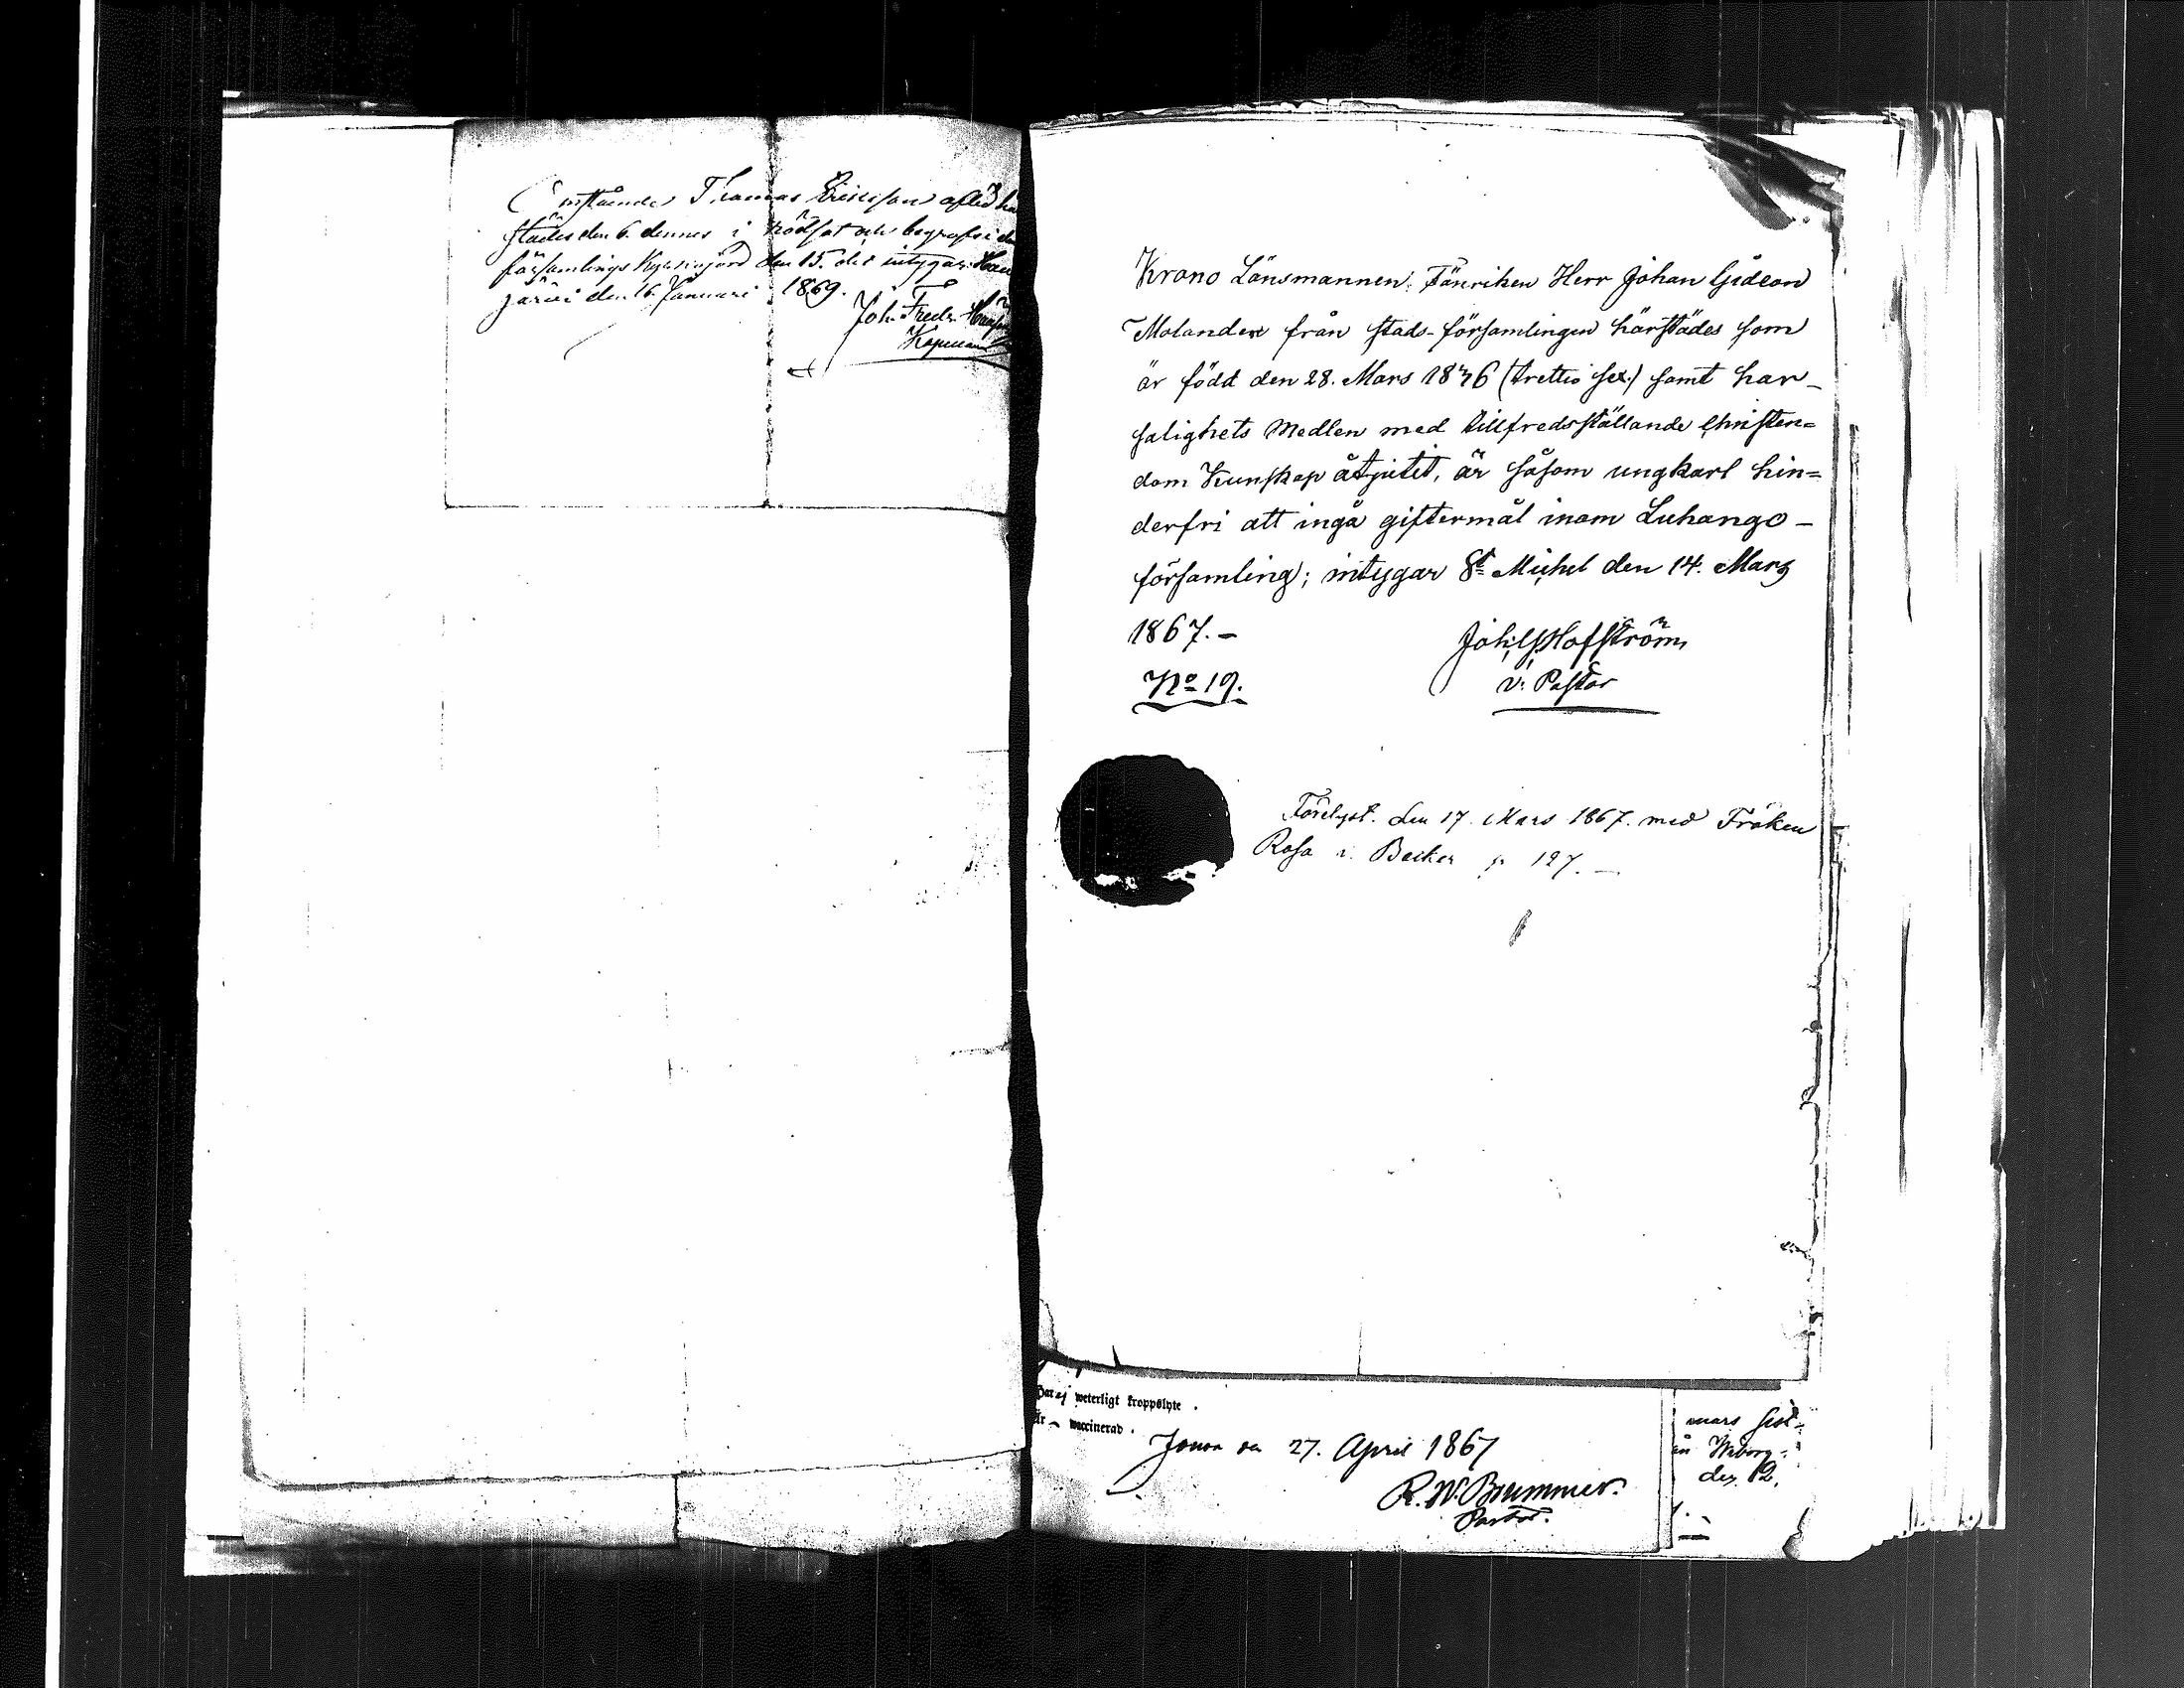 Omstående Thomas Ericsson afled här
städes den 6. dennes i rödsot och begrofs i denna
församlings Kyrkojord den 15. det intygar. Hau
järvi den 16. Januari 1869.
Joh. Fredr.
Kapellan
Krono Länsmannen, Fänriken Herr Johan Gideon
Molander från stads-församlingen härstädes som
är född den 28. Mars 1836 (trettio sex.) samt har –
salighets medlen med tillfredsställande Christen=
dom Kunskap åtnjutit, är såsom ungkarl hin=
derfri att ingå giftermål inom Luhango –
församling; intygar St Michel den 14. Mars
1867. –
Joh: G. Hofström,
v: Pastor
No 19.
Förelyst. den 17. Mars 1867. med Fröken
Rosa v. Becker p 127. –
Har ej weterligt kroppslyte .
Är – waccinerad .
Jouva den 27. April 1867
R. W. Brummer.
Pastor.
mars sist-
in Wiborg-
des. 12.